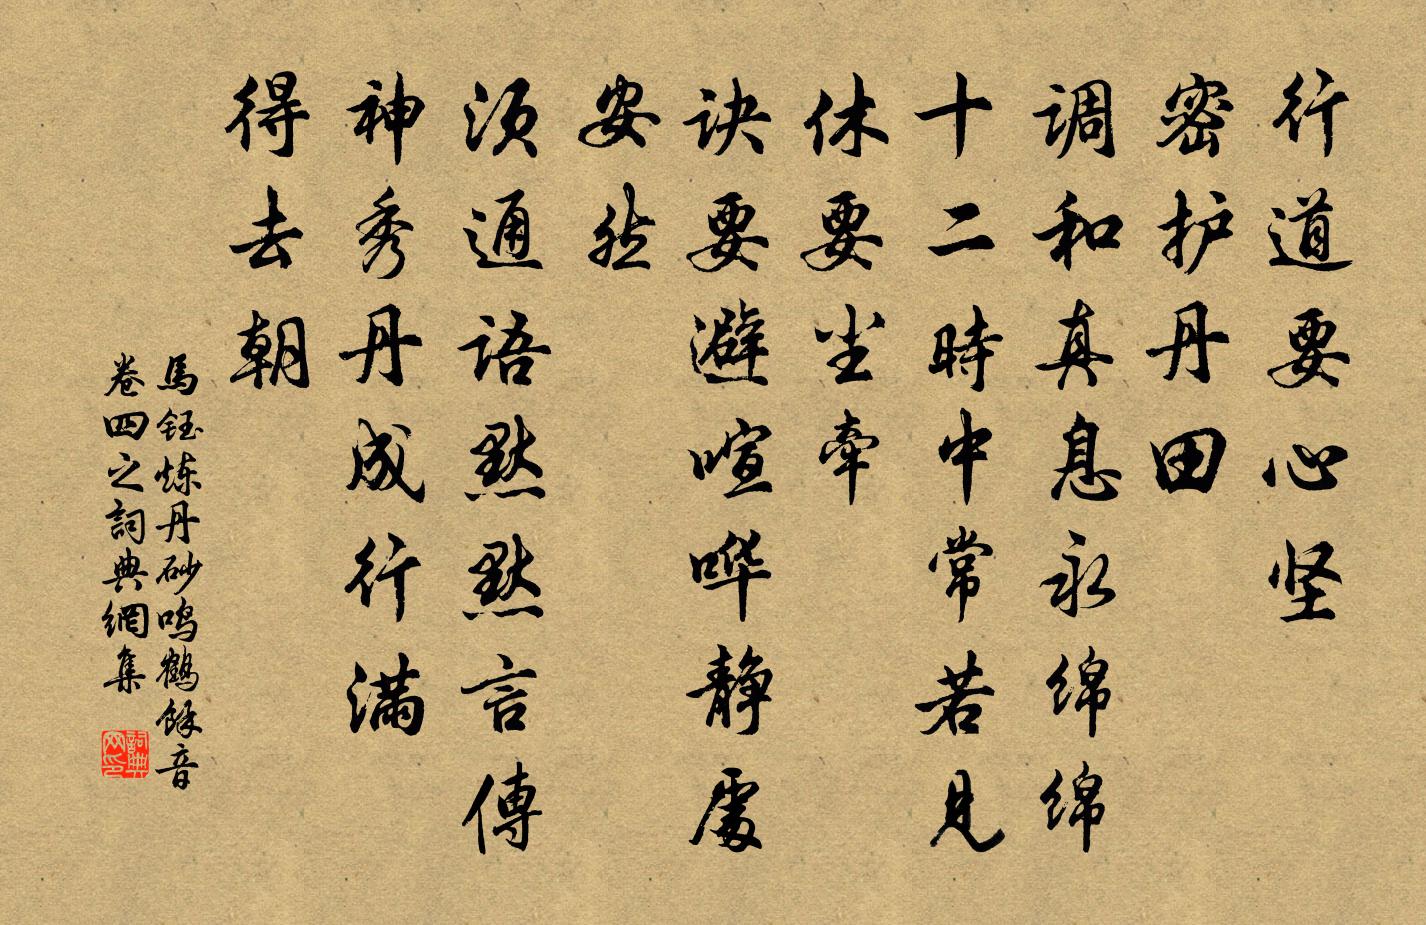 行道要心坚
密护丹田
调和真息永绵绵
十二時中常若见
休要尘牵
诀要避喧哗静處
安然
须通语默默言傳
神秀丹成行满
得去朝
馬钰炼丹砂鸣鹤馀音
卷四之詞典網集
詞典网印